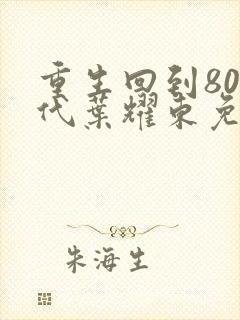 重生回到80
代葉耀东免
朱海生